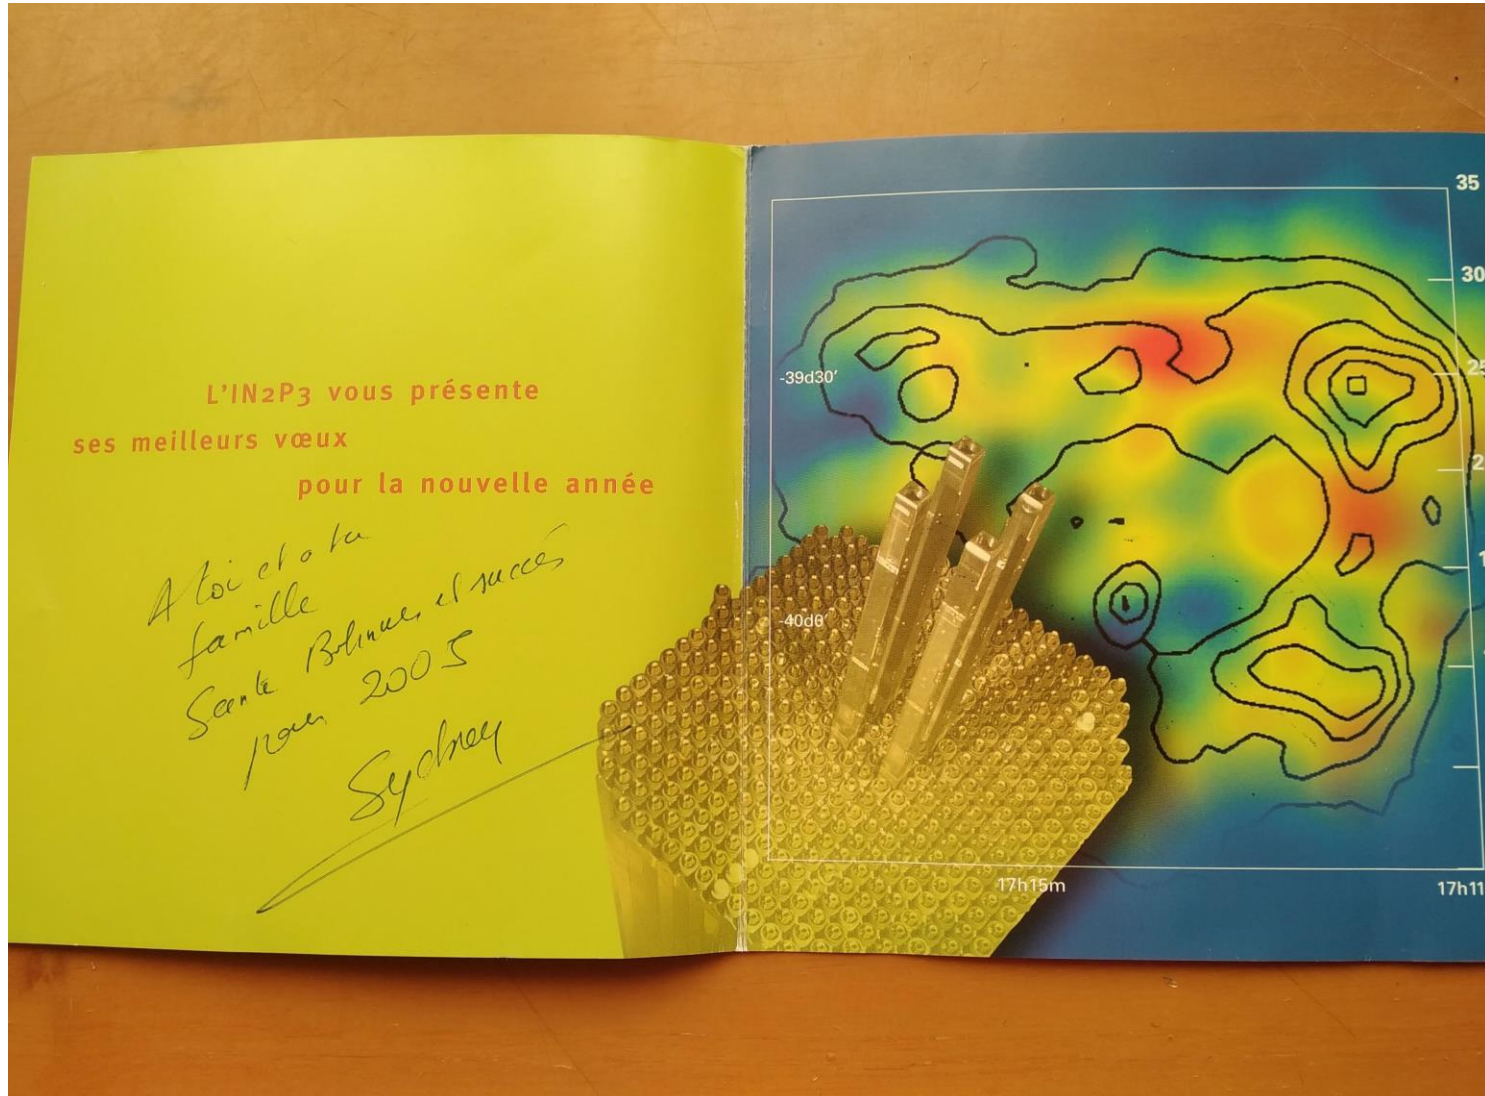 L'IN2P3 vous présente
ses meilleurs vœux
pour la nouvelle année
A toi et a ta
famille
Santé Bonheur et succès
pour 2005
Sydney
35
30
25
2
1
-39d30'
-40d0'
17h15m
17h11